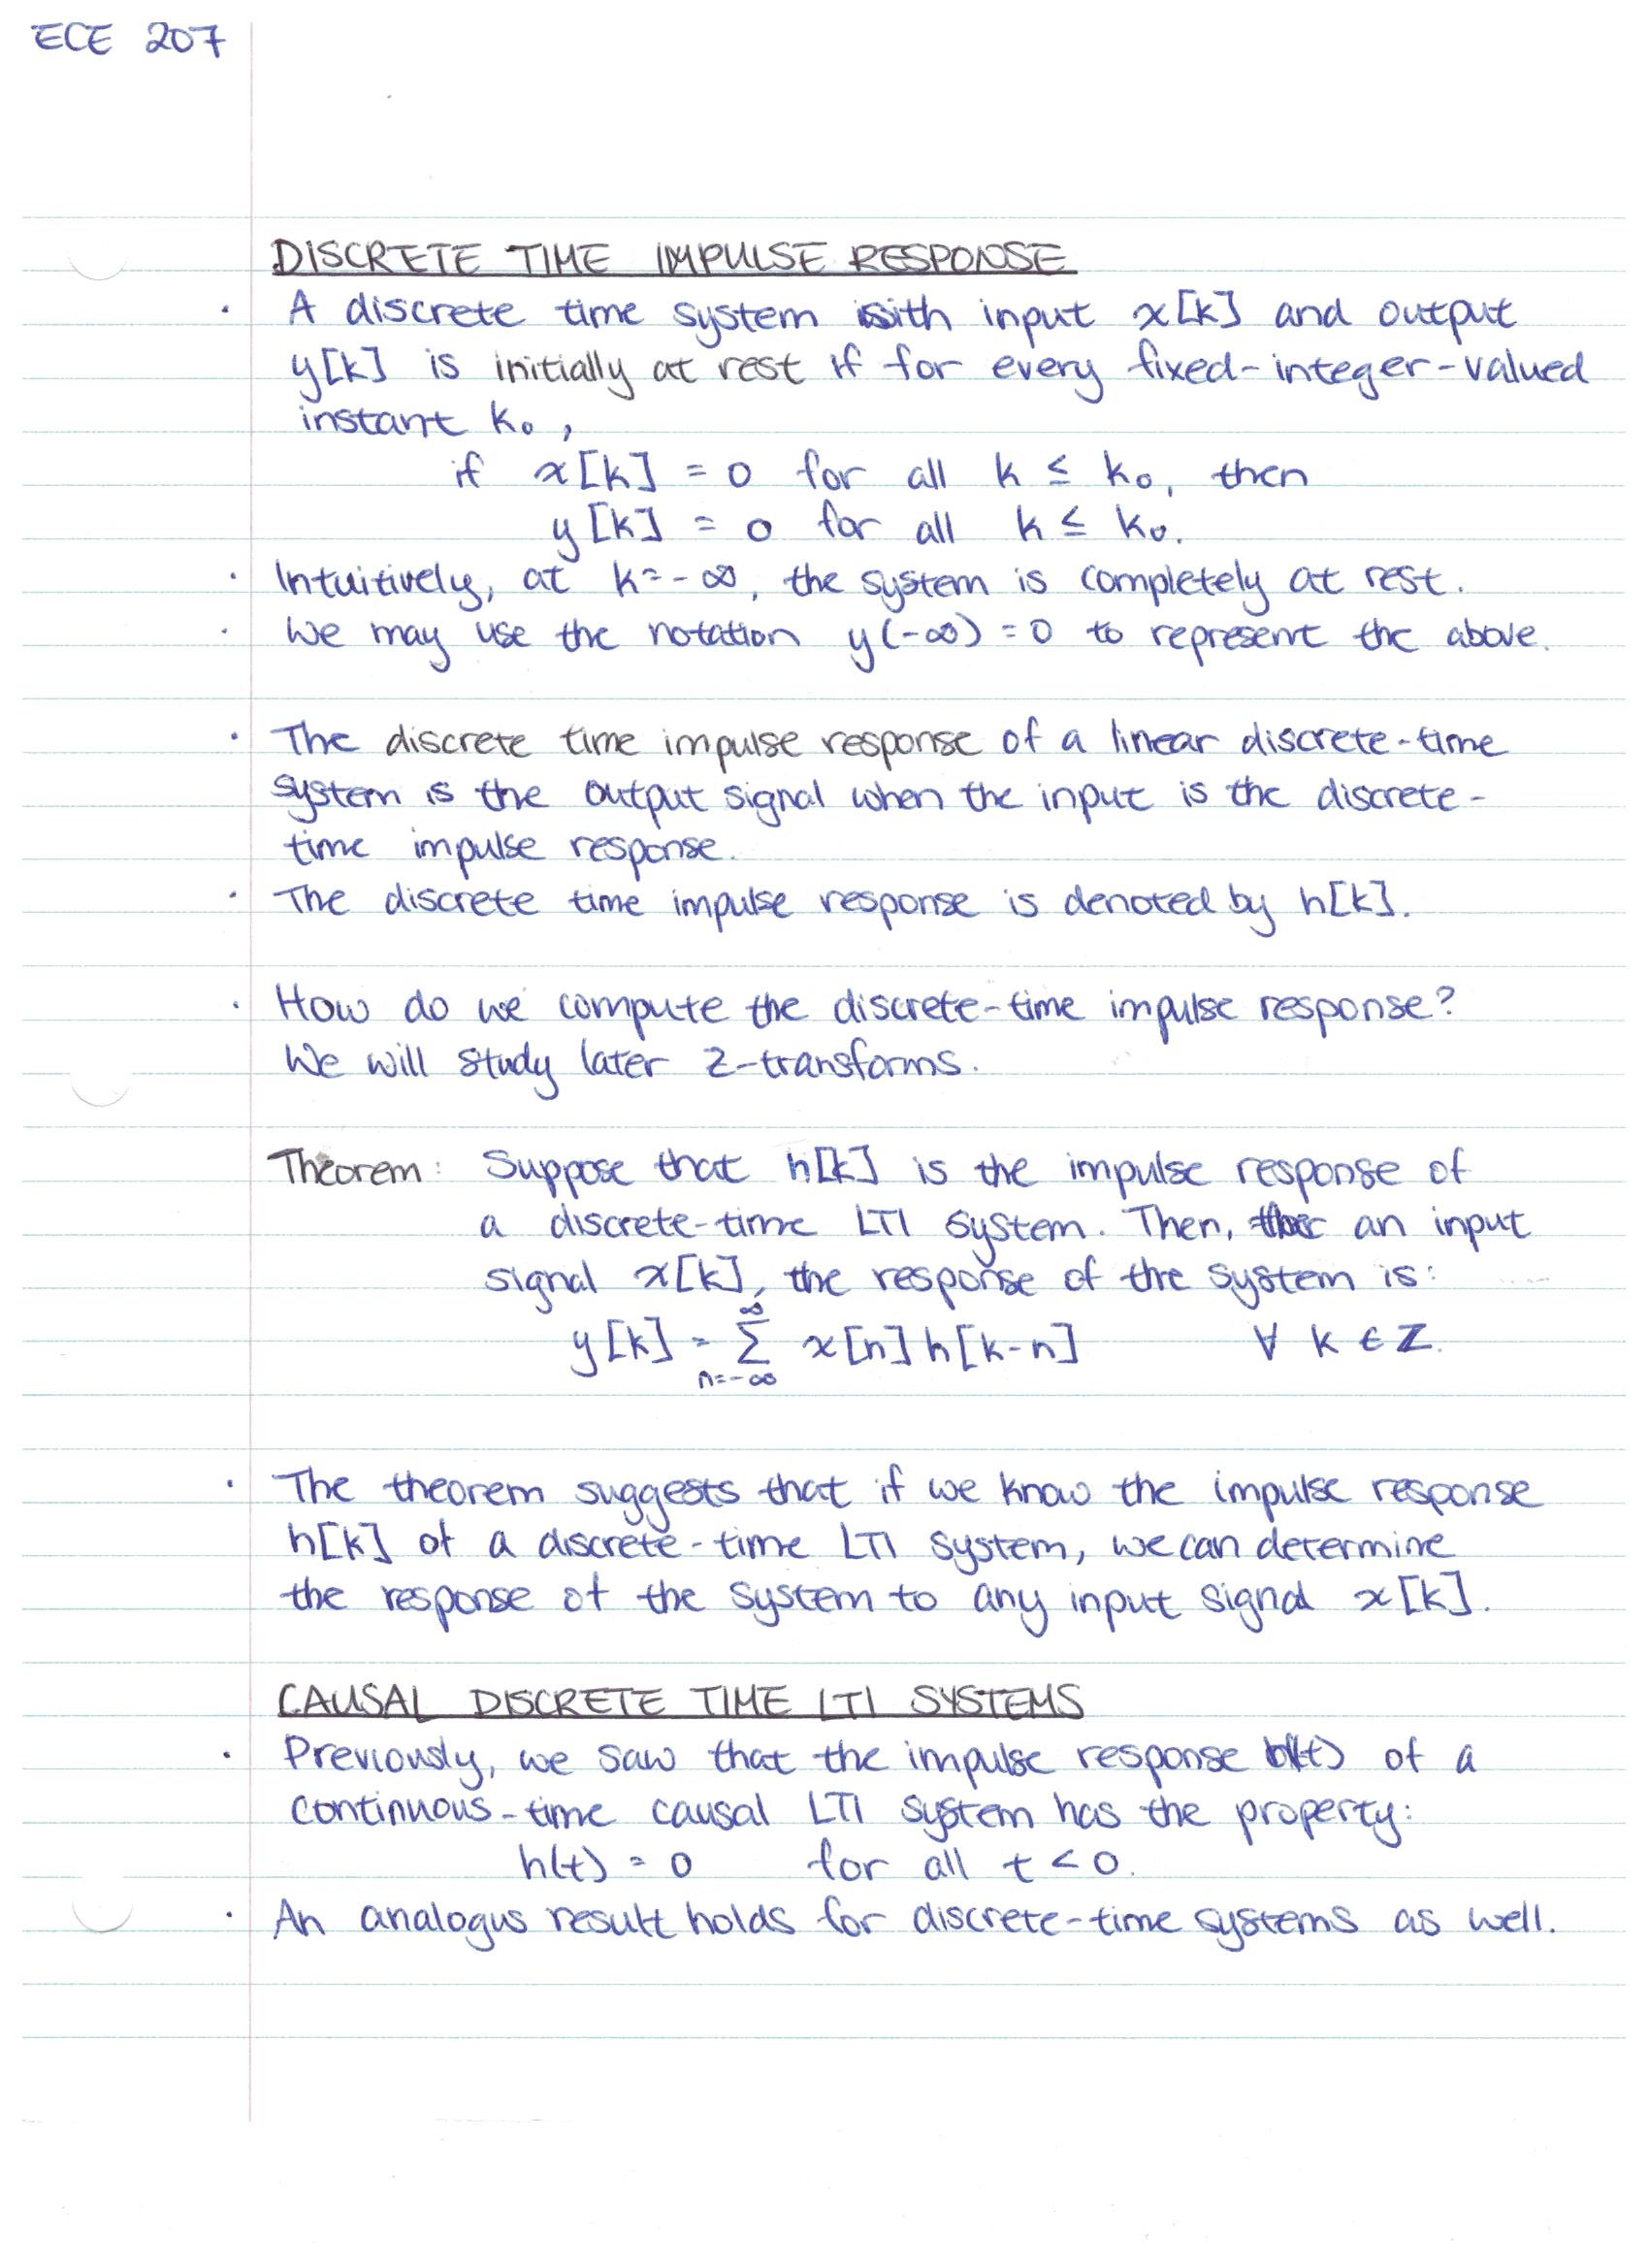 ECE 207
DISCRETE TIME IMPULSE RESPONSE
· A discrete time system with input x[k] and output
y[k] is initially at rest if for every fixed-integer-valued
instant k₀,
if x[k] = 0 for all k ≤ k₀, then
y[k] = 0 for all k ≤ k₀.
· Intuitively, at k=-∞, the system is completely at rest.
· We may use the notation y(-∞) = 0 to represent the above.
· The discrete time impulse response of a linear discrete-time
system is the output signal when the input is the discrete-
time impulse response.
· The discrete time impulse response is denoted by h[k].
· How do we compute the discrete-time impulse response?
We will study later z-transforms.
Theorem: Suppose that h[k] is the impulse response of
a discrete-time LTI system. Then, an input
signal x[k], the response of the system is:
y[k] = ∞∑n=-∞ x[n]h[k-n] ∀ k ∈ ℤ.
· The theorem suggests that if we know the impulse response
h[k] of a discrete-time LTI system, we can determine
the response of the system to any input signal x[k].
CAUSAL DISCRETE TIME LTI SYSTEMS
· Previously, we saw that the impulse response h(t) of a
continuous-time causal LTI system has the property:
h(t) = 0 for all t < 0.
· An analogus result holds for discrete-time systems as well.